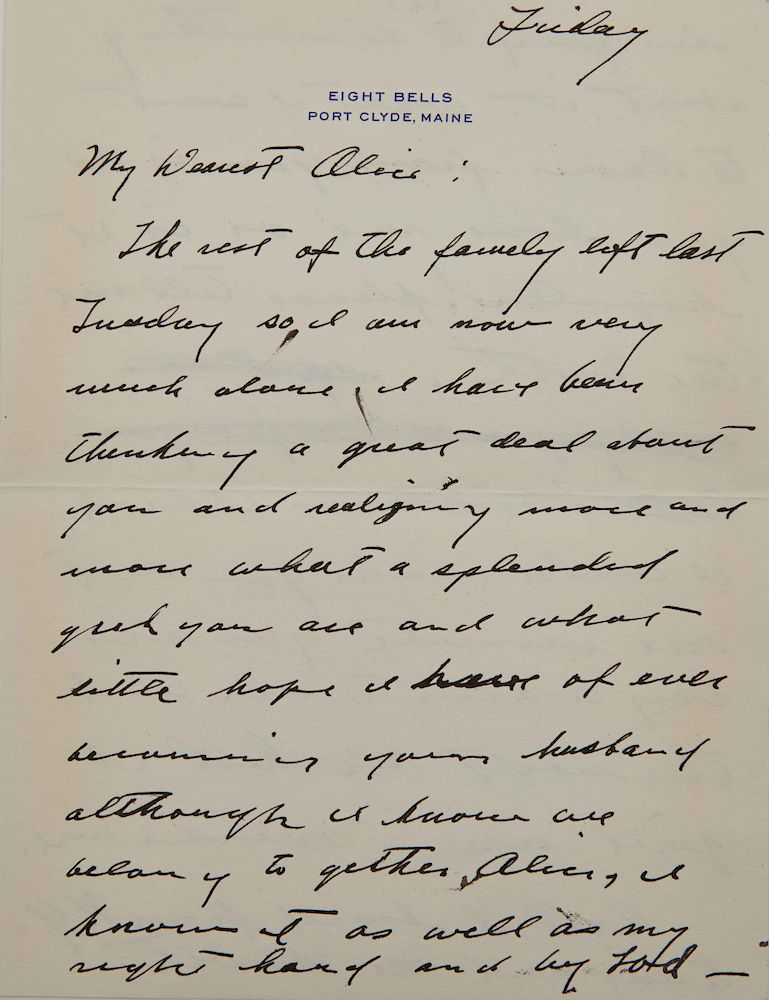 Friday
EIGHT BELLS
PORT CLYDE, MAINE
My Dearest Alice :
The rest of the family left last
Tuesday so, I am now very
much alone, I have been
thinking a great deal about
you and realizing more and
more what a splended
girl you are and what
little hope I have of ever
becoming your husband
although I know we
belong to gether, Alice, I
know it as well as my
right hand and by Lord —